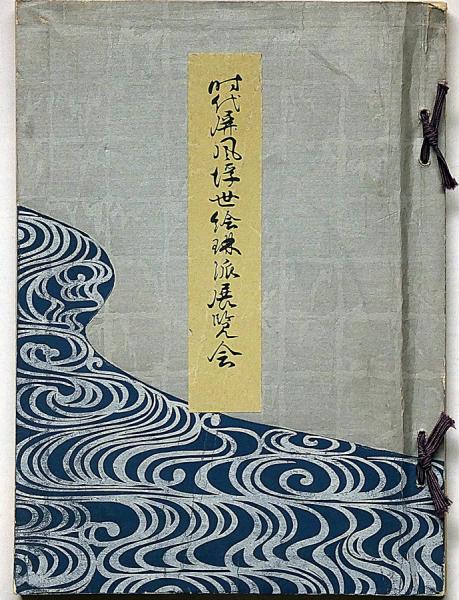 时代屏風浮世绘琳派展覧会